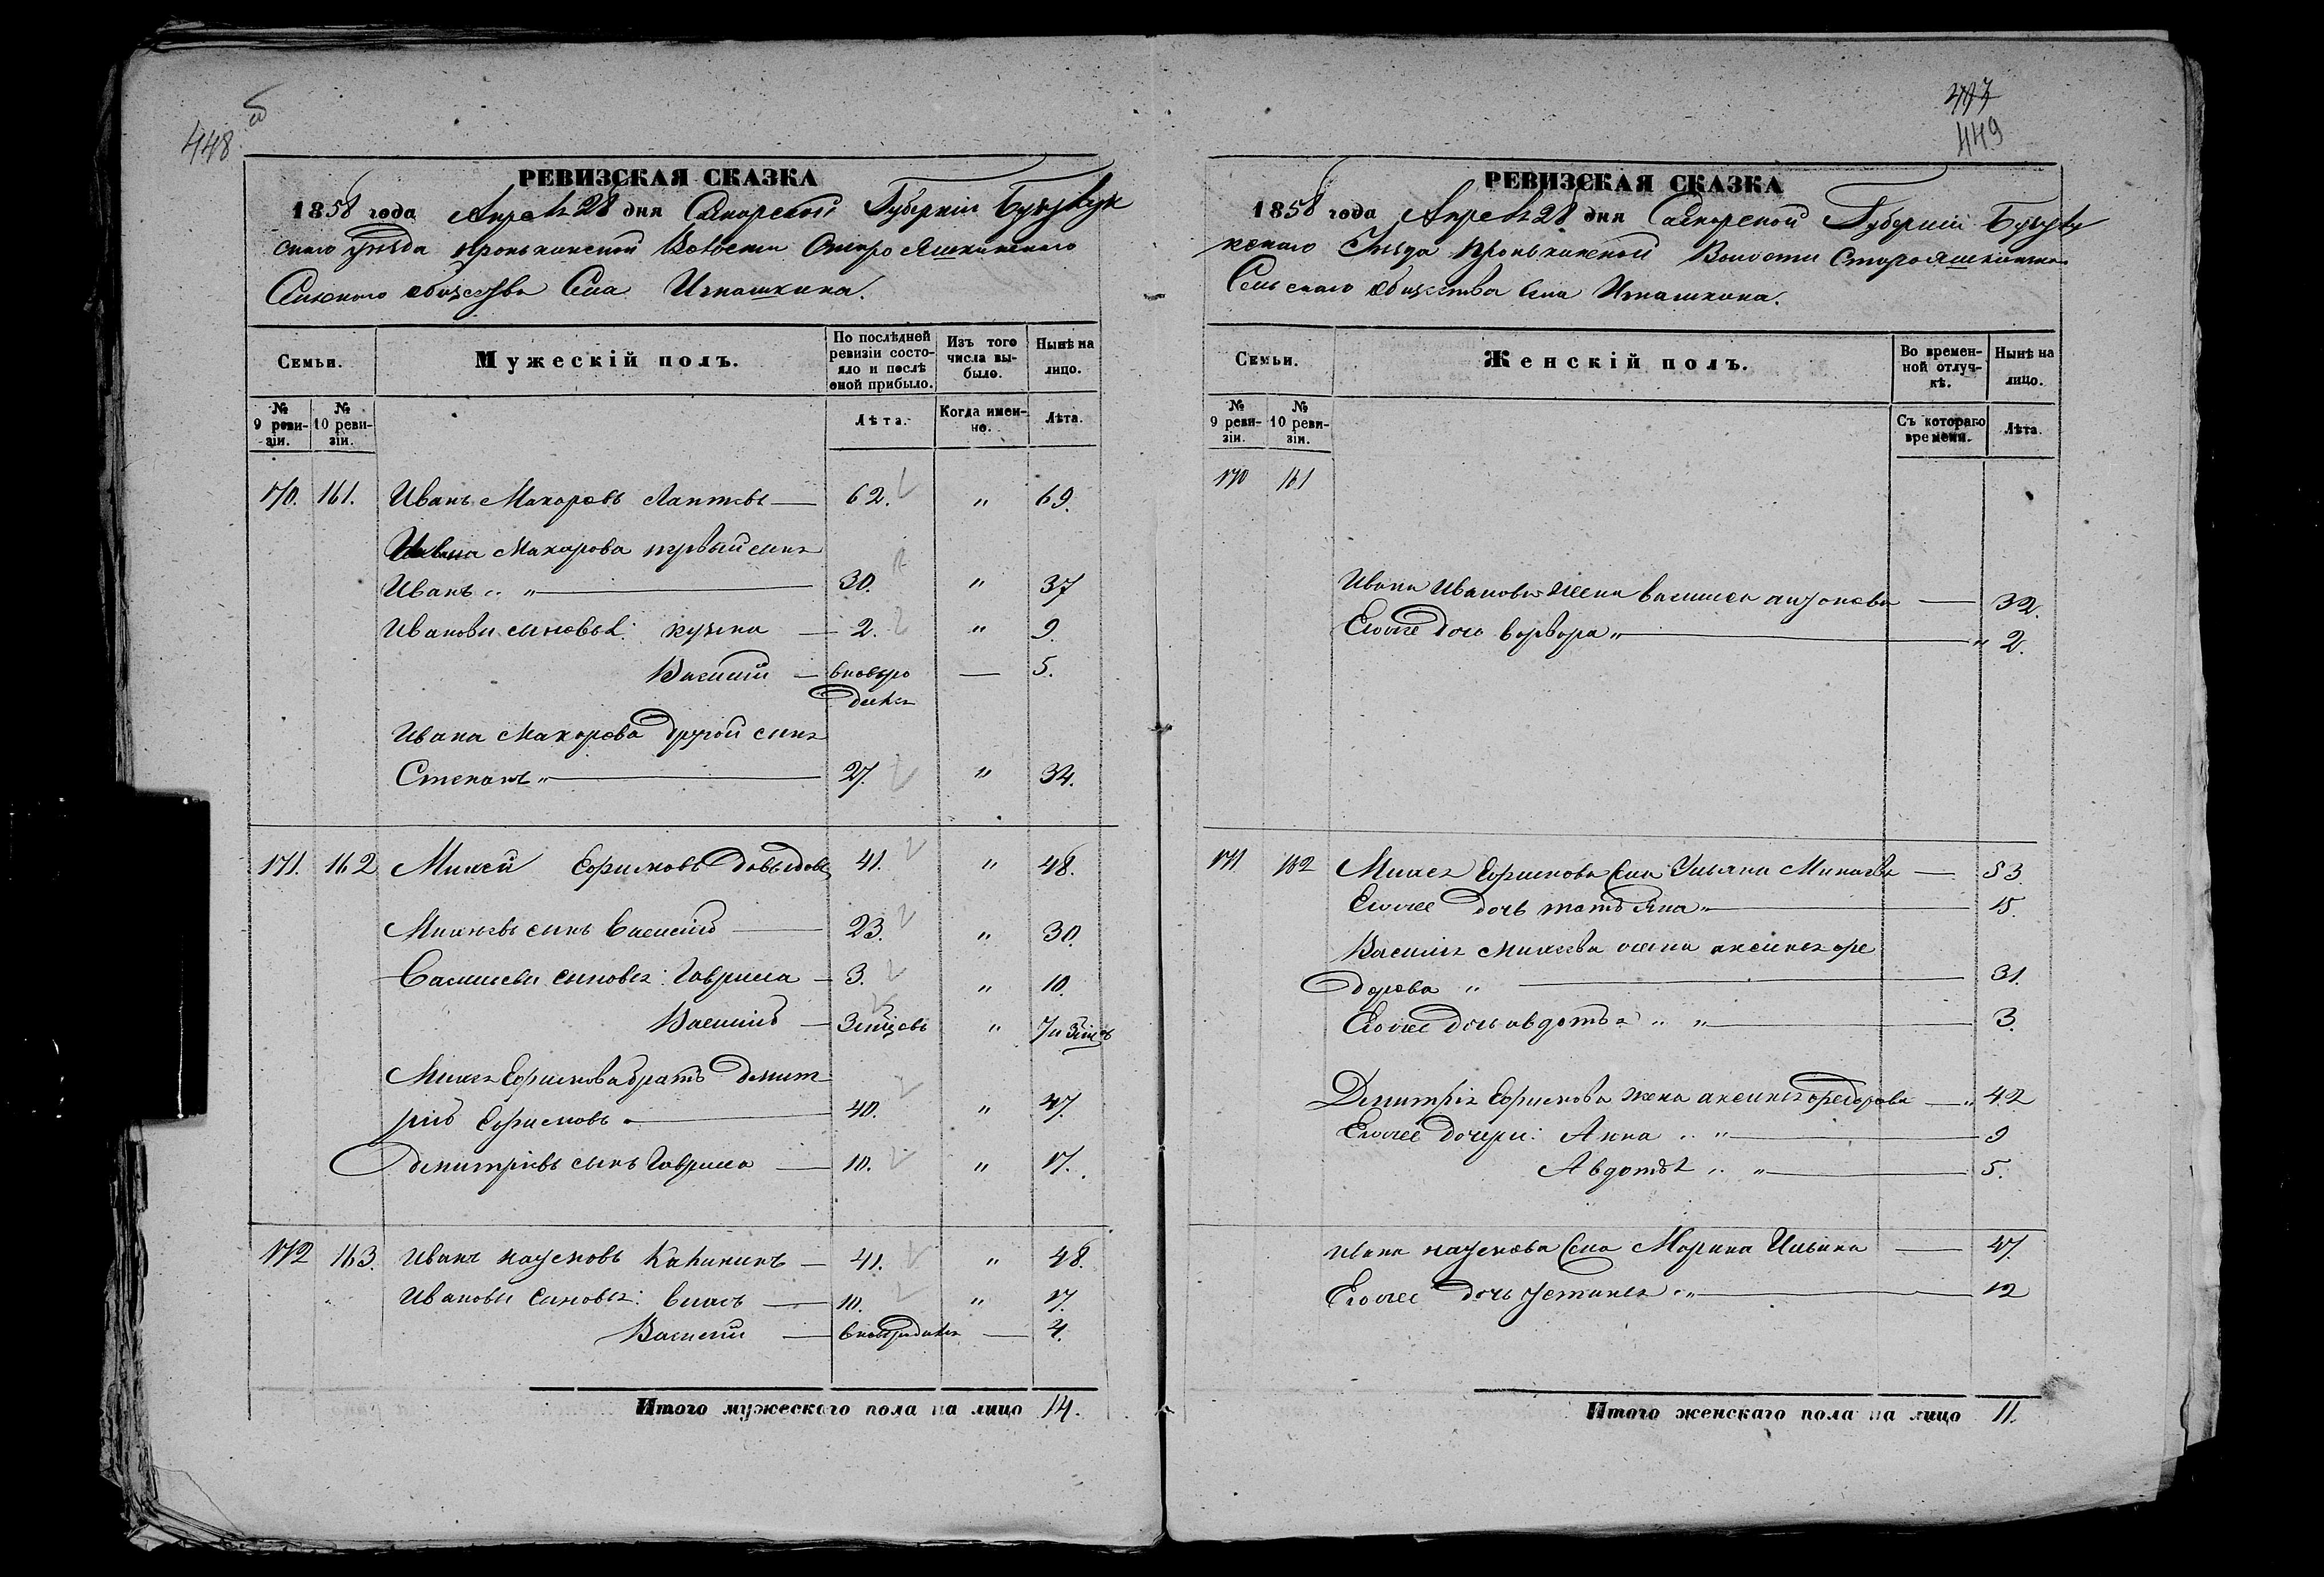 448 об
РЕВИЗСКАЯ СКАЗКА
1858 года Апреля 28 дня Самарской Губернии Бузулук
скаго уезда Пронькинской Волости Старо Яшкинскаго
Сельскаго общества Села Игнашкина.
Семьи.
Мужескій полъ.
По послѣдней ревизіи состояло и послѣ оной прибыло.
Изъ того числа выбыло.
Нынѣ на лицо.
№ 9 ревизіи.
№ 10 ревизіи.
Лѣта.
Когда именно.
Лѣта.
170. 161. Иванъ Макаровъ Лаптевъ — 62. " 69.
Ивана Макарова первый сынъ
Иванъ " — 30. " 37
Ивановы сыновья: Кузма — 2. " 9.
Василій — вновь ро — 5.
дился
Ивана Макарова другой сынъ
Степанъ " — 27. " 34.
171. 162 Михей Ефимовъ Давыдовъ 41. " 48.
Михеевъ сынъ Василій — 23. " 30.
Васильевы сыновья: Гаврила — 3. " 10.
Василій — 3 месцовъ " 7 и 3 месцъ
Михея Ефимова братъ Димит
рій Ефимовъ — 40. " 47.
Димитріевъ сынъ Гаврила — 10. " 17.
172 163. Иванъ Наумовъ Калининъ — 41. " 48.
Ивановы сыновья: Власъ — 10. " 17.
Василій — вновь родился — 4.
Итого мужескаго пола на лицо 14.
449
РЕВИЗСКАЯ СКАЗКА
1858 года Апреля 28 дня Самарской Губерніи Бузулу
кскаго Уезда Пронькинской Волости Старояшкинска
Сельскаго общества Села Игнашкина.
Семьи.
Женскій полъ.
Во временной отлучкѣ.
Нынѣ на лицо.
№ 9 ревизіи.
№ 10 ревизіи.
Съ котораго времени.
Лѣта.
170 161
Ивана Иванова жена Василиса Антонова — 32.
Егоже дочь Варвара " — " 2.
171 162 Михея Ефимова жена Ульяна Минаева — 53.
Егоже дочь Татьяна " — 15.
Василья Михеева жена Аксинья Фе
дорова " — 31.
Егоже дочь Авдотья " " — 3.
Димитрія Ефимова жена Аксинья Федорова — " 42
Егоже дочери: Анна " " — 9
Авдотья " " — 5.
Ивана Наумова жена Марина Ильина — 47.
Егоже дочь Устинья " — 12
Итого женскаго пола на лицо 11.